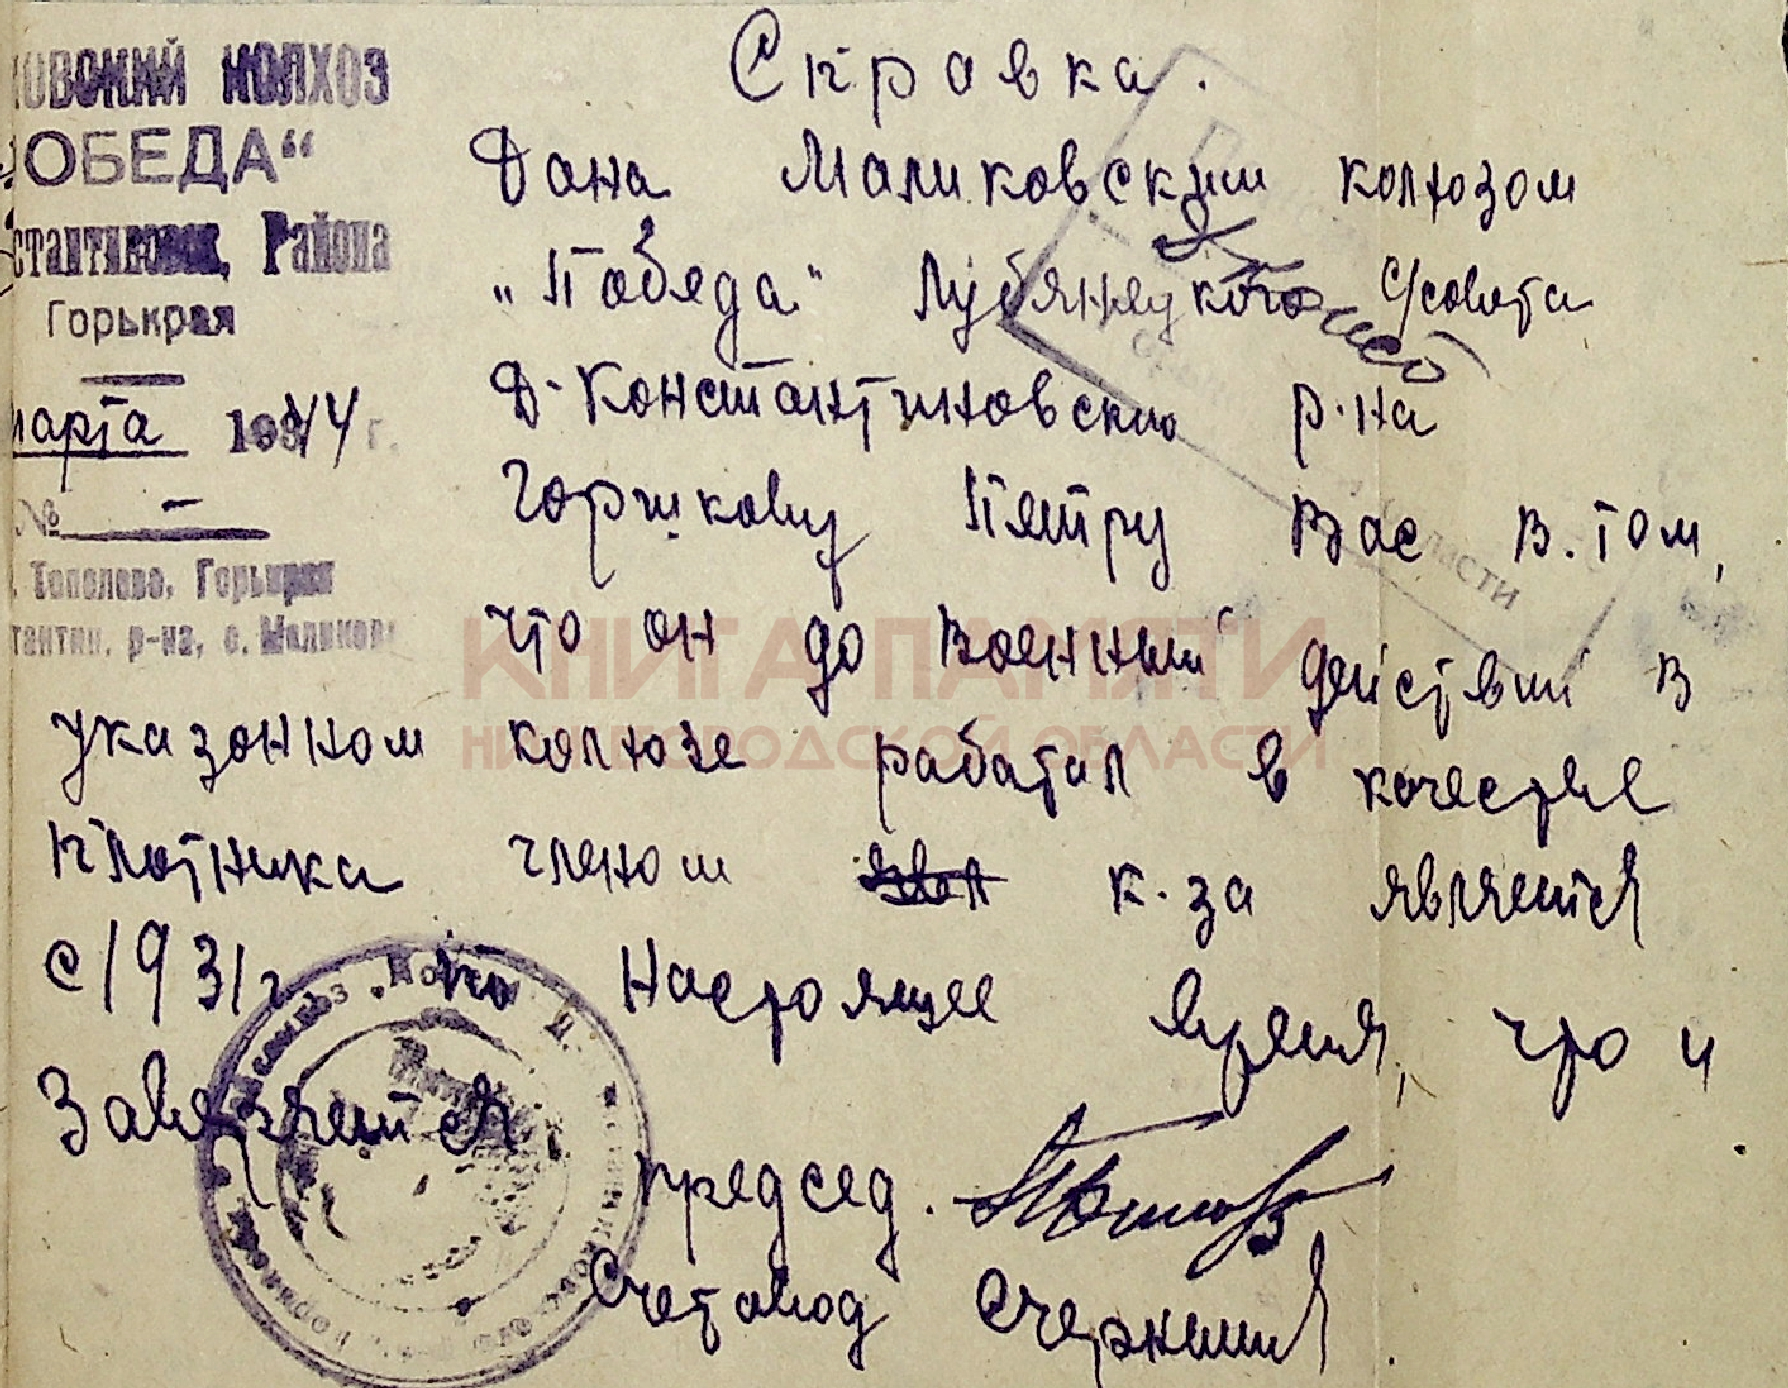 Справка.
ОВСКИЙ КОЛХОЗ
ОБЕДА"
стантиновск, Района
Горькрая
марта 1944 г.
№ –
Тополево, Горькрая
тантин. р-на, с. Маликов
Дана Маликовским колхозом
„Победа" Лубянецкого С/совета
Д-Константиновско р-на
Горшкову Петру Вас в. том,
что он до Военный действий в
указонном колхозе работал в качестве
плотника членом к-за является
с 1931г. по Настоящее время, что и
Заверяется.
председ.
Счетовод
КНИГА ПАМЯТИ
НИЖЕГОРОДСКОЙ ОБЛАСТИ